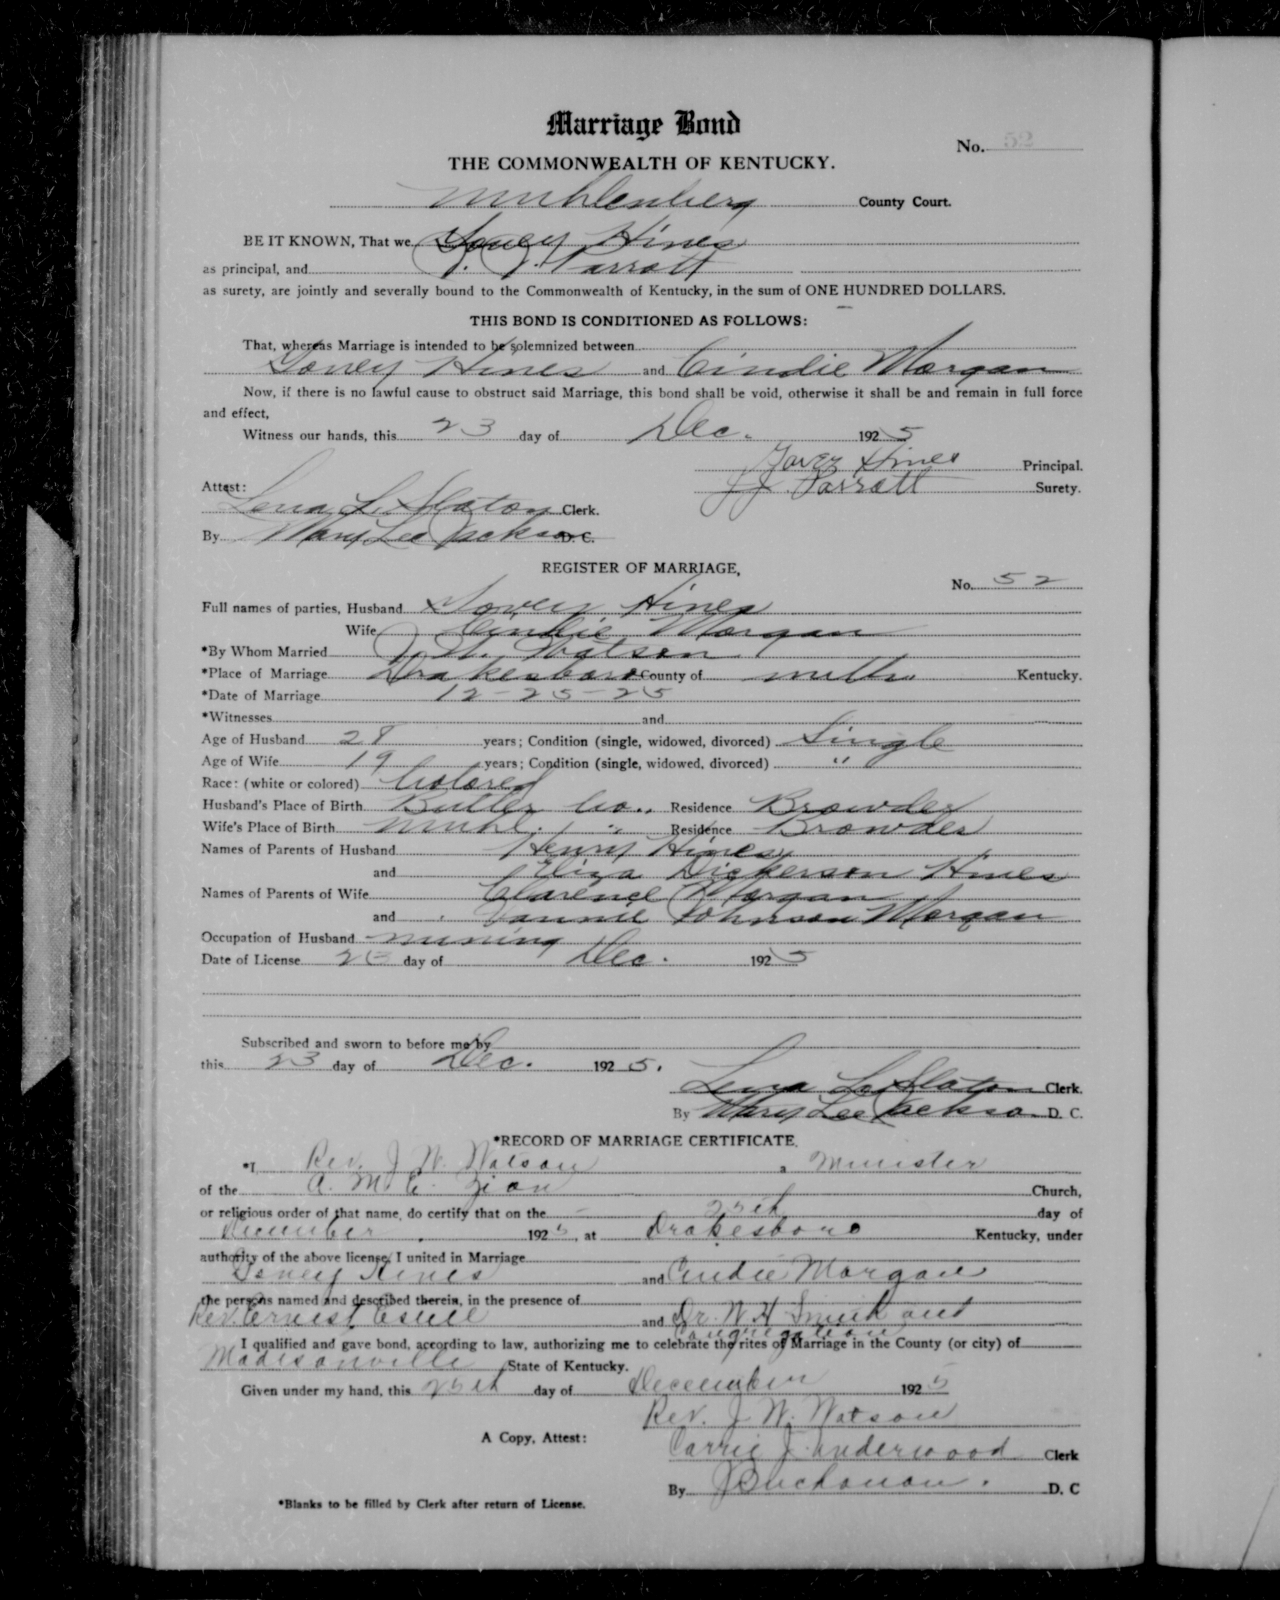 Marriage Bond
No. 52
THE COMMONWEALTH OF KENTUCKY.
Muhlenberg County Court.
BE IT KNOWN, That we Hines
as principal, and J. J. Parratt
as surety, are jointly and severally bound to the Commonwealth of Kentucky, in the sum of ONE HUNDRED DOLLARS.
THIS BOND IS CONDITIONED AS FOLLOWS:
That, whereas Marriage is intended to be solemnized between
Hines and Cindie Morgan
Now, if there is no lawful cause to obstruct said Marriage, this bond shall be void, otherwise it shall be and remain in full force
and effect,
Witness our hands, this 23 day of Dec. 1925
Hines Principal.
Attest: J J. Parratt Surety.
Lena L. Slaton Clerk.
By Mary Lee Jackson D. C.
REGISTER OF MARRIAGE,
No. 52
Full names of parties, Husband Hines
Wife Cindie Morgan
*By Whom Married J. W. Watson
*Place of Marriage Drakesboro County of Muhl. Kentucky.
*Date of Marriage 12-25-25
*Witnesses and
Age of Husband 28 years; Condition (single, widowed, divorced) Single
Age of Wife 19 years; Condition (single, widowed, divorced) "
Race: (white or colored) Colored
Husband's Place of Birth Butler Co., Residence Browder
Wife's Place of Birth Muhl. " Residence Browder
Names of Parents of Husband Henry Hines
and Eliza Dickerson Hines
Names of Parents of Wife Clarence Morgan
and Johnson Morgan
Occupation of Husband mining
Date of License 23 day of Dec. 1925
Subscribed and sworn to before me by
this 23 day of Dec. 1925.
Lena L. Slaton Clerk.
By Mary Lee Jackson D. C.
*RECORD OF MARRIAGE CERTIFICATE.
*I Rev. J W Watson, Minister
of the A. M. E. Zion Church,
or religious order of that name, do certify that on the 25th day of
December 1925, at Drakesboro Kentucky, under
authority of the above license, I united in Marriage
Hines and Cindie Morgan
the persons named and described therein, in the presence of
Rev. Ernest and Dr. W. H Smith and
Congregation
I qualified and gave bond, according to law, authorizing me to celebrate the rites of Marriage in the County (or city) of
Madisonville State of Kentucky.
Given under my hand, this 25th day of December 1925
Rev. J. W. Watson
A Copy, Attest: Carrie J. Underwood Clerk
By J Buchanan. D. C
*Blanks to be filled by Clerk after return of License.